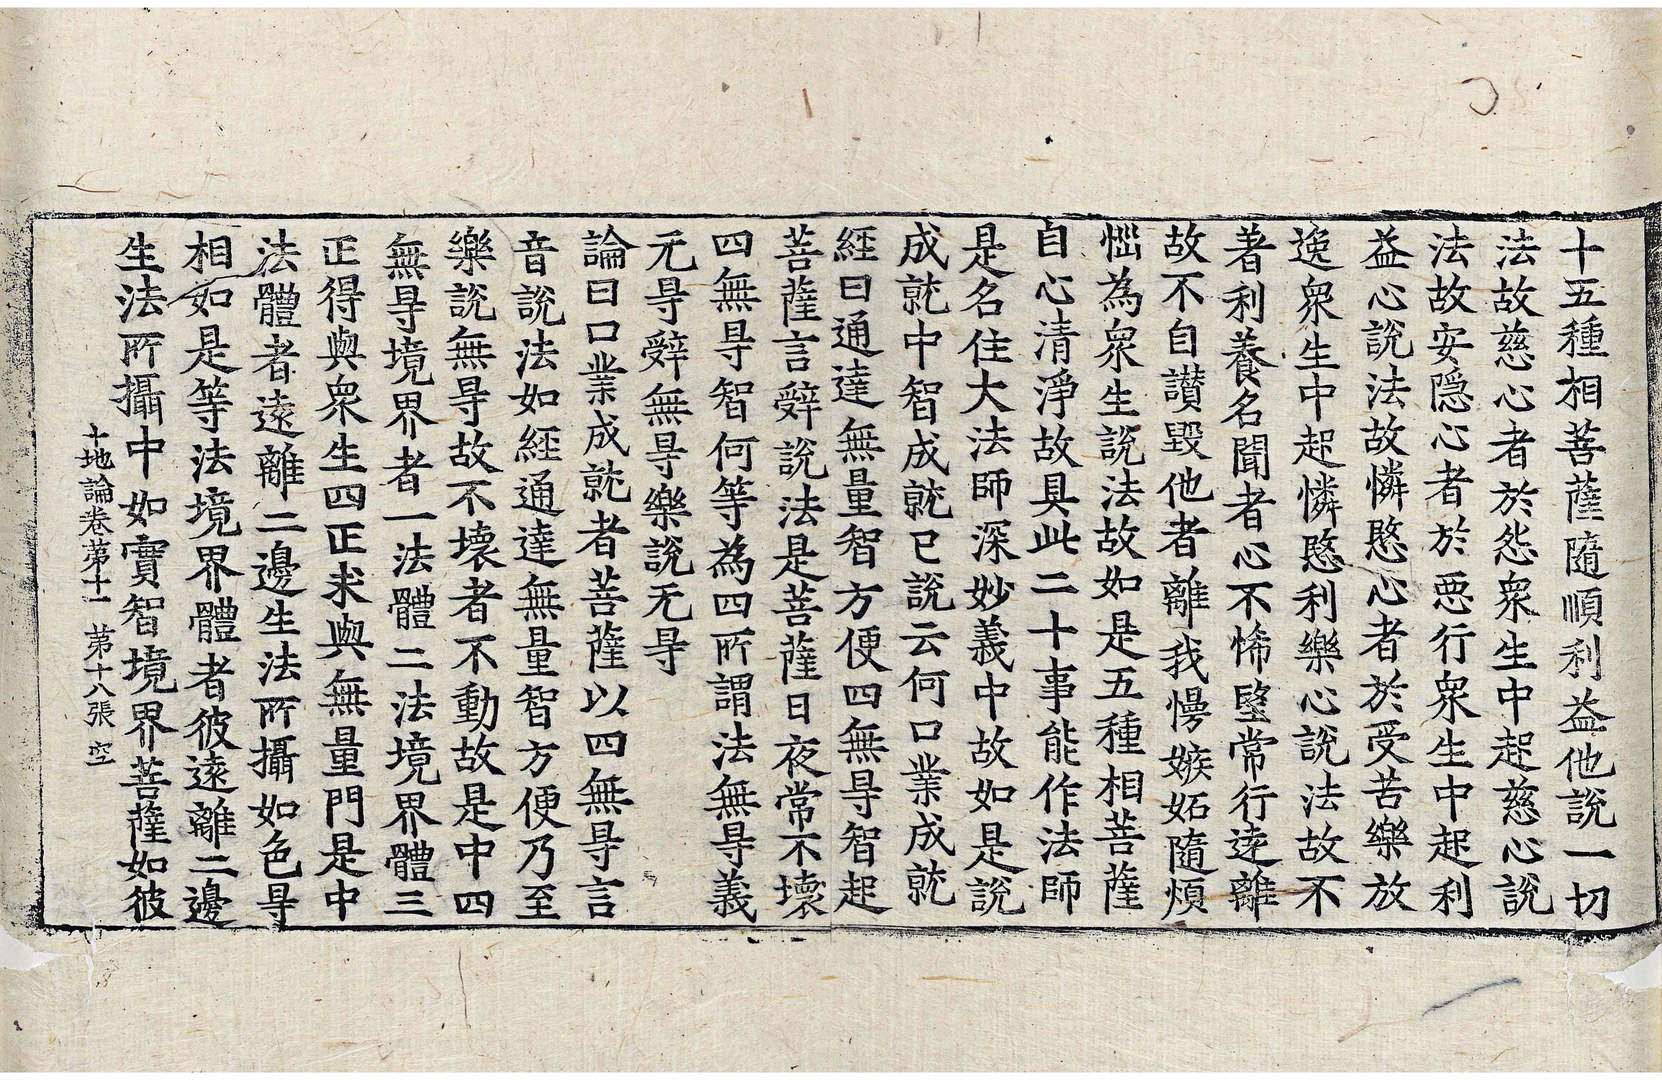 十五種相菩薩隨順利益他說一切
法故慈心者於怨衆生中起慈心說
法故安隱心者於惡行衆生中起利
益心說法故憐愍心者於受苦樂放
逸衆生中起憐愍利樂心說法故不
著利養名聞者心不悕望常行遠離
故不自讃毀他者離我慢嫉妬隨煩
惱為衆生說法故如是五種相菩薩
自心清淨故具此二十事能作法師
是名住大法師深妙義中故如是說
成就中智成就已說云何口業成就
經曰通達無量智方便四無㝵智起
菩薩言辭說法是菩薩日夜常不壞
四無㝵智何等為四所謂法無㝵義
无㝵辭無㝵樂說无㝵
論曰口業成就者菩薩以四無㝵言
音說法如經通達無量智方便乃至
樂說無㝵故不壞者不動故是中四
無㝵境界者一法體二法境界體三
正得與衆生四正求與無量門是中
法體者遠離二邊生法所攝如色㝵
相如是等法境界體者彼遠離二邊
生法所攝中如實智境界菩薩如彼
十地論卷第十一 第十八張 空